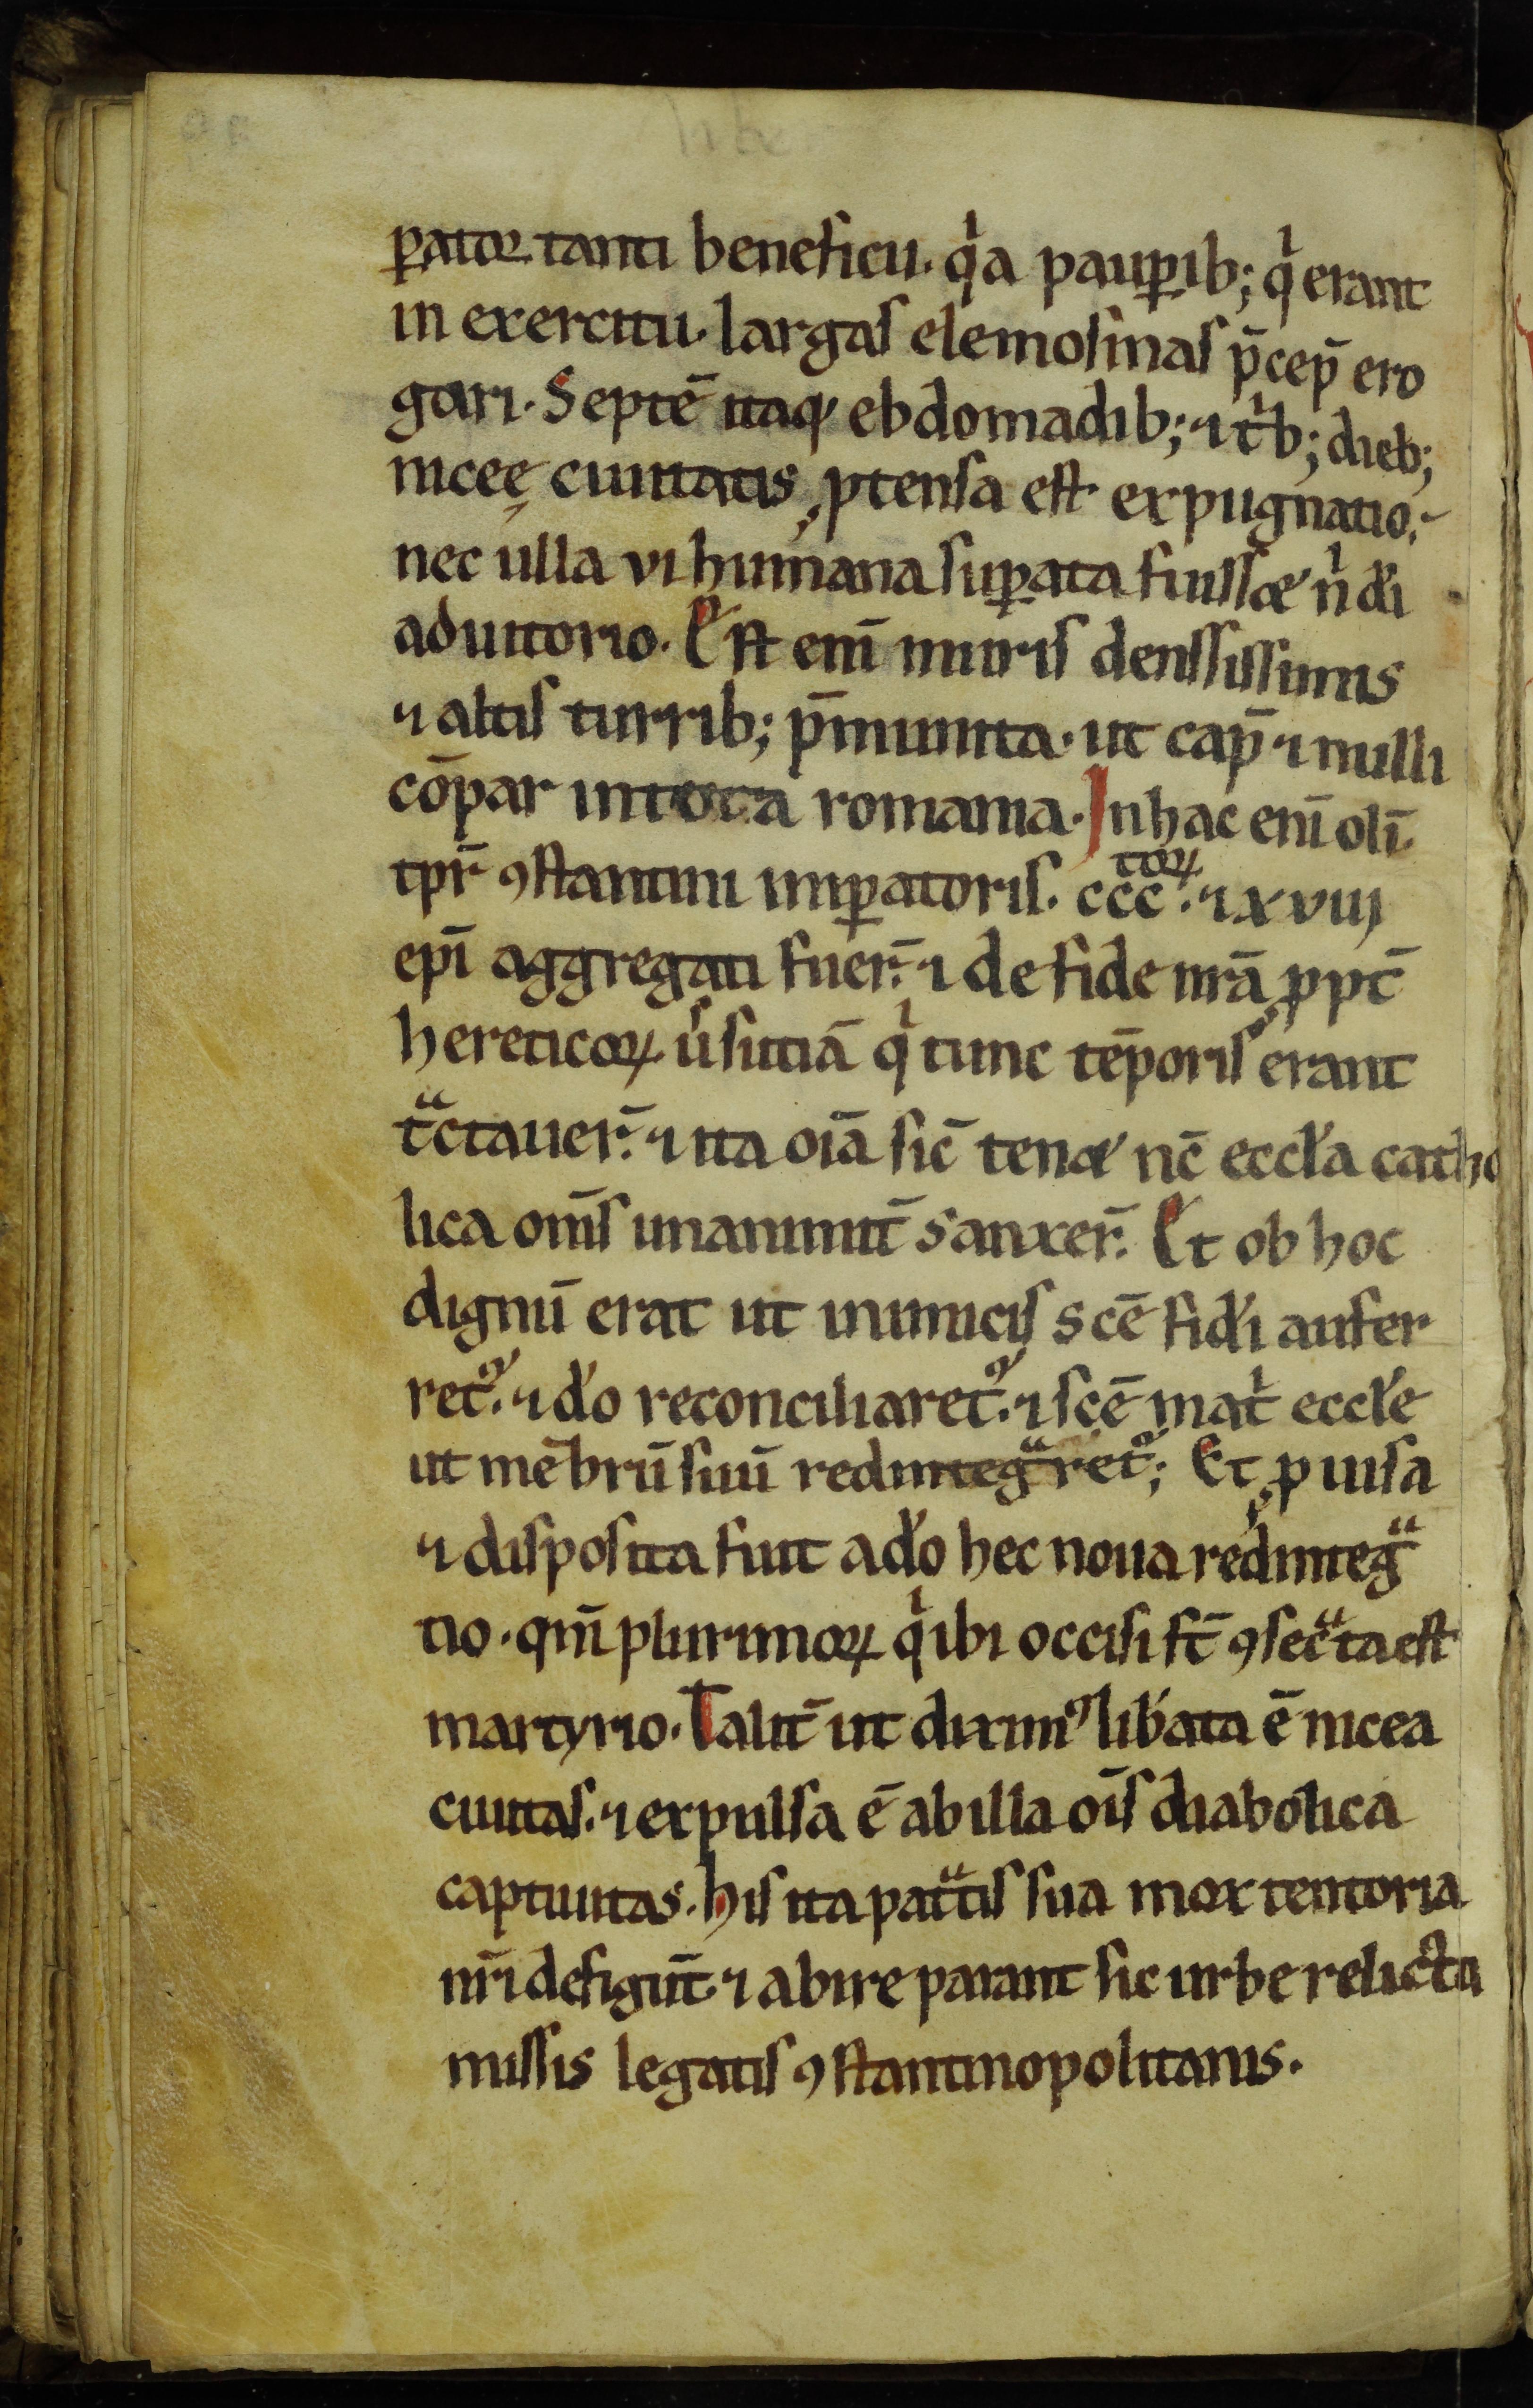 ꝑator tanti beneficii. qͥa pauꝑib; qͥ erant
in exercitu. largas elemosinas p̄cep̄ ero
gari. Septē itaq; ebdomadib; ⁊ tͥb; dieb;
niceę ciuitatis ꝓtensa est expugnatio.
nec ulla ui humana suꝑata fuisset nͥ di
adiutorio. Est enī muris denssissimis
⁊ altis turrib; p̄munita. ut cap̄ ⁊ nulli
cōpar in tota romania. In hac enī olī
tpr̄ ꝯstantini imꝑatoris. ccctoꝝ. ⁊ xviij
epī aggregati fuer̄. ⁊ de fide nrā ꝓpt̄
hereticoꝝ ůsutiā qͥ tunc tēporis erant
tͣctauer̄. ⁊ ita oīa sic̄ tenet nc̄ eccl̓a catho
lica om̄s unanimit̄ sanxer̄. Et ob hoc
dignū erat ut inimicis scē fid̓i aufer
ret᷒. ⁊ d̓o reconciliaret᷒. ⁊ scē matͥ eccl̓e
ut mēbrū suū redintegͣret᷒; Et ꝓuisa
⁊ disposita fuit a d̓o hec noua redintegͣ
tio. qm̄ plurimoꝝ qͥ ibi occisi st̄ ꝯsecͣta est
martyrio. Talit̄ ut diximꝰ lib̓ata ē nicea
ciuitas. ⁊ expulsa ē ab illa oīs diabolica
captiuitas. his ita patͣtis sua mox tentoria
nr̄i defigūt. ⁊ abire parant sic urbe relicta
missis legatis ꝯstantinopolitanis.